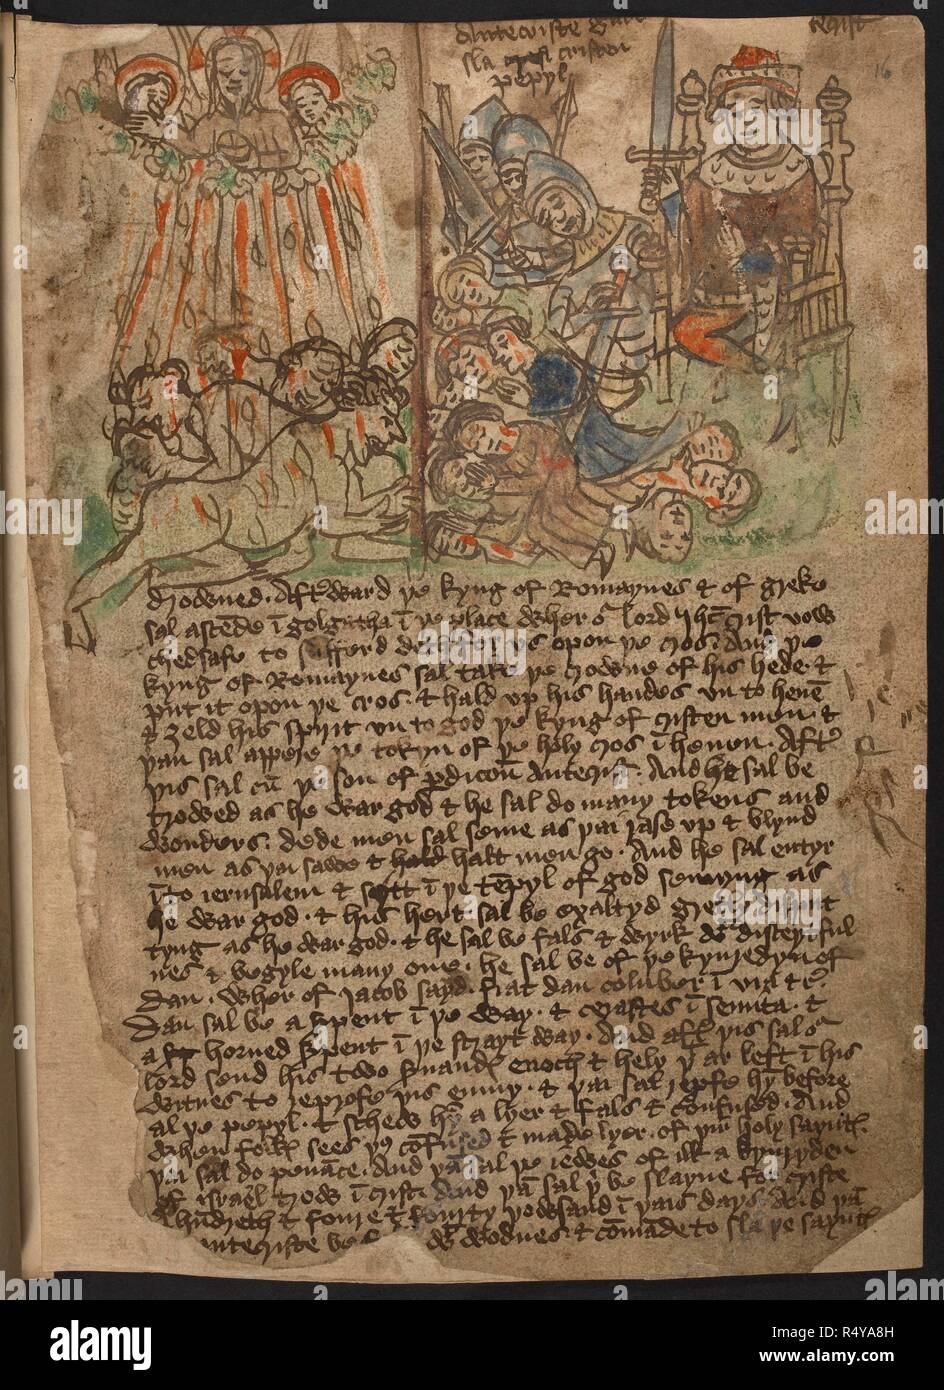 Antecriste & hau
sla cristen
pepyl
16
crowned. Afterward þe kyng of Romaynes & of greke
sal astēde ī golgatha ī þe place wher oʳ lord Jhc̄ crist vow
chedsafe to sufferd deth for vs opon þe cros. And þe
kyng of Romaynes sal take þe crowne of his hede. &
put it opon þe cros. & hald vp his handes vn to heuē
& zeld his spyrit vn to god þe kyng of cristen men. &
þan sal appere þe tokyn of þe holy cros ī heuen. Aftʳ
þis sal cū þe son of p̄dicoū Antecrist. And he sal be
trowed as he war god & he sal do many tokens and
wonders. dede men sal seme as þai rase vp & blynd
men as þai sawe & halt men go. And he sal entyr
ī to ierusalem & sytt ī þe tēpyl of god semyng as
he war god. & his hert sal be exaltyd gretly
tyng as he war god. & he sal be fals & wyrk disceyful
nes & begyle many one. he sal be of þe kynredyn of
Dan. Wher of Jacob sayd. fiat dan coluber ī via &c.
Dan sal be a serpent ī þe way. & cerastes ī semita. &
a horned serpent ī þe strayt way. And aftʳ þis sal oʳ
lord send his two seruandes enoch & hely þʳ ar left ī his
witnes to reprofe þis enmy. & þai sal reprfe hȳ before
al þe pepyl. & schew hȳ a lyer & fals & confused. And
when folk sees hȳ cōfused & made lyer. of þir holy sayntes
þai sal do penāce. And þā sal þe iewes of ilk a kynryden
of israel trow ī crist. And þā sal þʳ be slayne for criste
A hūdreth & foure & fourty þowsand ī þais days. And þā
antecriste be wodnes. & cōmāde to sla þe sayntes
alamy
Image ID: R4YA8H
www.alamy.com